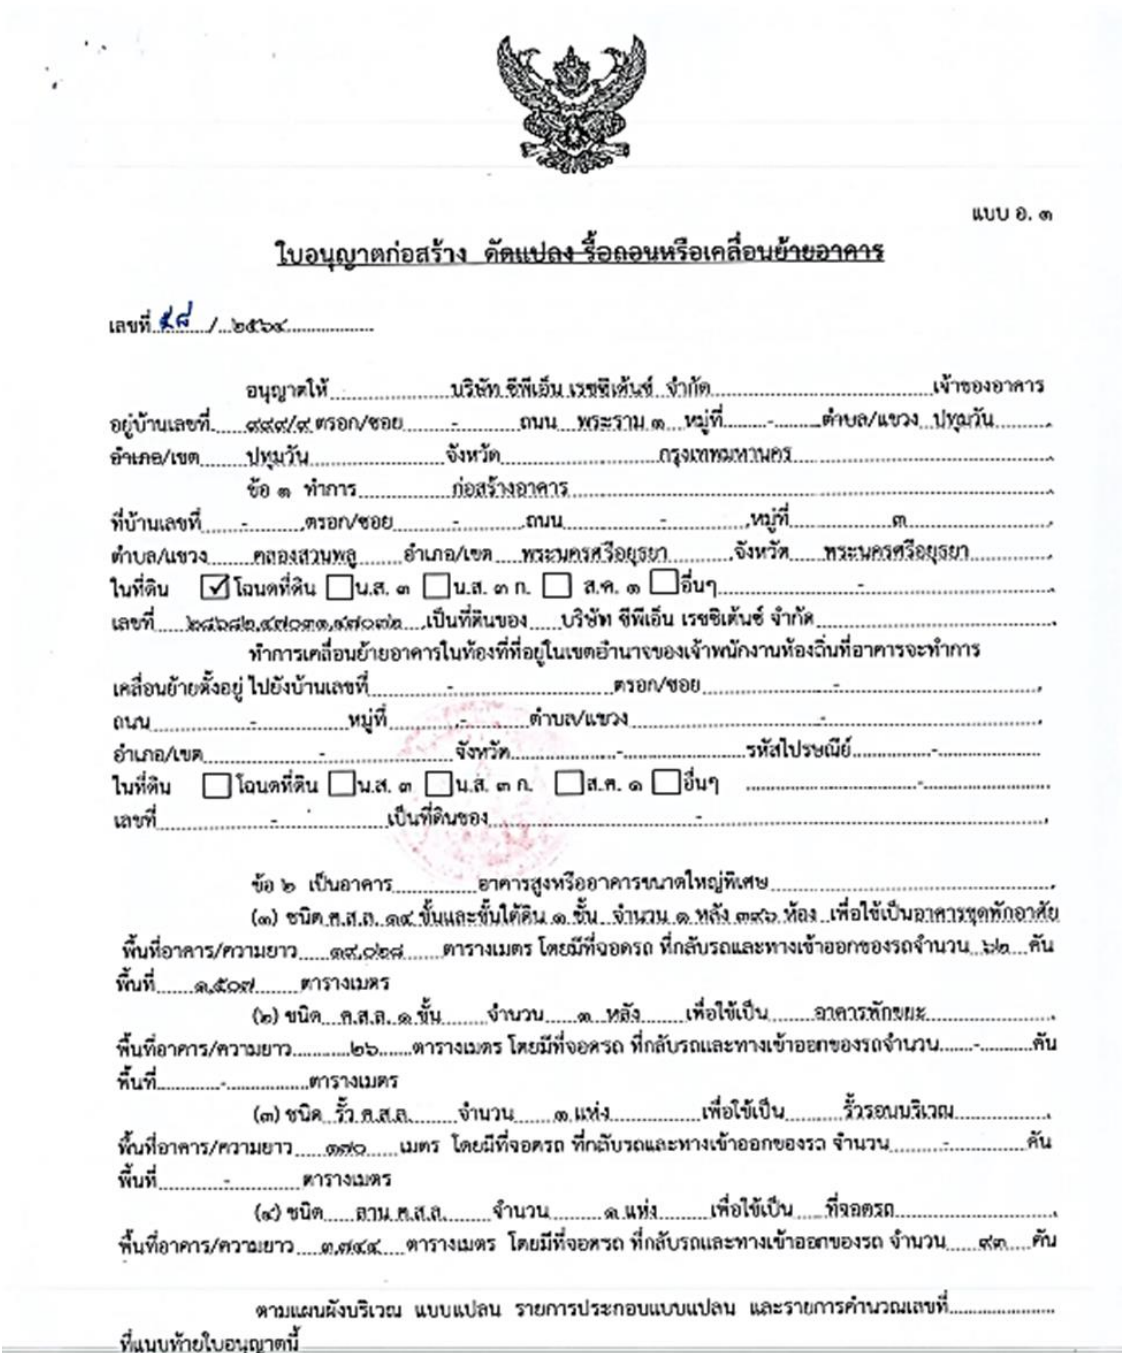 แบบ อ. ๑
ใบอนุญาตก่อสร้าง ดัดแปลง รื้อถอนหรือเคลื่อนย้ายอาคาร
เลขที่ ๕๘ / ๒๕๖๔
อนุญาตให้ บริษัท ซีพีเอ็น เรซซิเด้นซ์ จำกัด เจ้าของอาคาร
อยู่บ้านเลขที่ ๙๙๙/๙ ตรอก/ซอย - ถนน พระราม ๑ หมู่ที่ - ตำบล/แขวง ปทุมวัน
อำเภอ/เขต ปทุมวัน จังหวัด กรุงเทพมหานคร
ข้อ ๑ ทำการ ก่อสร้างอาคาร
ที่บ้านเลขที่ - ตรอก/ซอย - ถนน - หมู่ที่ ๓
ตำบล/แขวง คลองสวนพลู อำเภอ/เขต พระนครศรีอยุธยา จังหวัด พระนครศรีอยุธยา
ในที่ดิน ☑ โฉนดที่ดิน ☐ น.ส. ๓ ☐ น.ส. ๓ ก. ☐ ส.ค. ๑ ☐ อื่นๆ -
เลขที่ เป็นที่ดินของ บริษัท ซีพีเอ็น เรซซิเด้นซ์ จำกัด
ทำการเคลื่อนย้ายอาคารในท้องที่ที่อยู่ในเขตอำนาจของเจ้าพนักงานท้องถิ่นที่อาคารจะทำการ
เคลื่อนย้ายตั้งอยู่ ไปยังบ้านเลขที่ - ตรอก/ซอย -
ถนน - หมู่ที่ - ตำบล/แขวง -
อำเภอ/เขต - จังหวัด - รหัสไปรษณีย์ -
ในที่ดิน ☐ โฉนดที่ดิน ☐ น.ส. ๓ ☐ น.ส. ๓ ก. ☐ ส.ค. ๑ ☐ อื่นๆ -
เลขที่ - เป็นที่ดินของ -
ข้อ ๒ เป็นอาคาร อาคารสูงหรืออาคารขนาดใหญ่พิเศษ
(๑) ชนิด ค.ส.ล. ๑๔ ชั้นและชั้นใต้ดิน ๑ ชั้น จำนวน ๑ หลัง ๓๙๖ ห้อง เพื่อใช้เป็นอาคารชุดพักอาศัย
พื้นที่อาคาร/ความยาว ๑๙,๐๒๘ ตารางเมตร โดยมีที่จอดรถ ที่กลับรถและทางเข้าออกของรถจำนวน ๖๒ คัน
พื้นที่ ๑,๕๐๗ ตารางเมตร
(๒) ชนิด ค.ส.ล. ๑ ชั้น จำนวน ๑ หลัง เพื่อใช้เป็น อาคารพักขยะ
พื้นที่อาคาร/ความยาว ๒๖ ตารางเมตร โดยมีที่จอดรถ ที่กลับรถและทางเข้าออกของรถจำนวน - คัน
พื้นที่ - ตารางเมตร
(๓) ชนิด รั้ว ค.ส.ล. จำนวน ๑ แห่ง เพื่อใช้เป็น รั้วรอบบริเวณ
พื้นที่อาคาร/ความยาว ๓๗๐ เมตร โดยมีที่จอดรถ ที่กลับรถและทางเข้าออกของรถ จำนวน - คัน
พื้นที่ - ตารางเมตร
(๔) ชนิด ลาน ค.ส.ล. จำนวน ๑ แห่ง เพื่อใช้เป็น ที่จอดรถ
พื้นที่อาคาร/ความยาว ๓,๗๔๔ ตารางเมตร โดยมีที่จอดรถ ที่กลับรถและทางเข้าออกของรถ จำนวน ๙๓ คัน
ตามแผนผังบริเวณ แบบแปลน รายการประกอบแบบแปลน และรายการคำนวณเลขที่
ที่แนบท้ายใบอนุญาตนี้